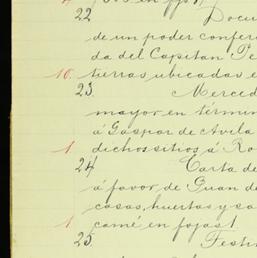 22 Docu
de un poder confer
da del Capitan Pe
10. tierras ubicadas e
23. Merced
mayor en términ
á Gaspar de Avila
1 dichos sitios á Ro
24 Carta de
á favor de Guan de
casas, huertas y sa
1 camé en fojas 1
25.